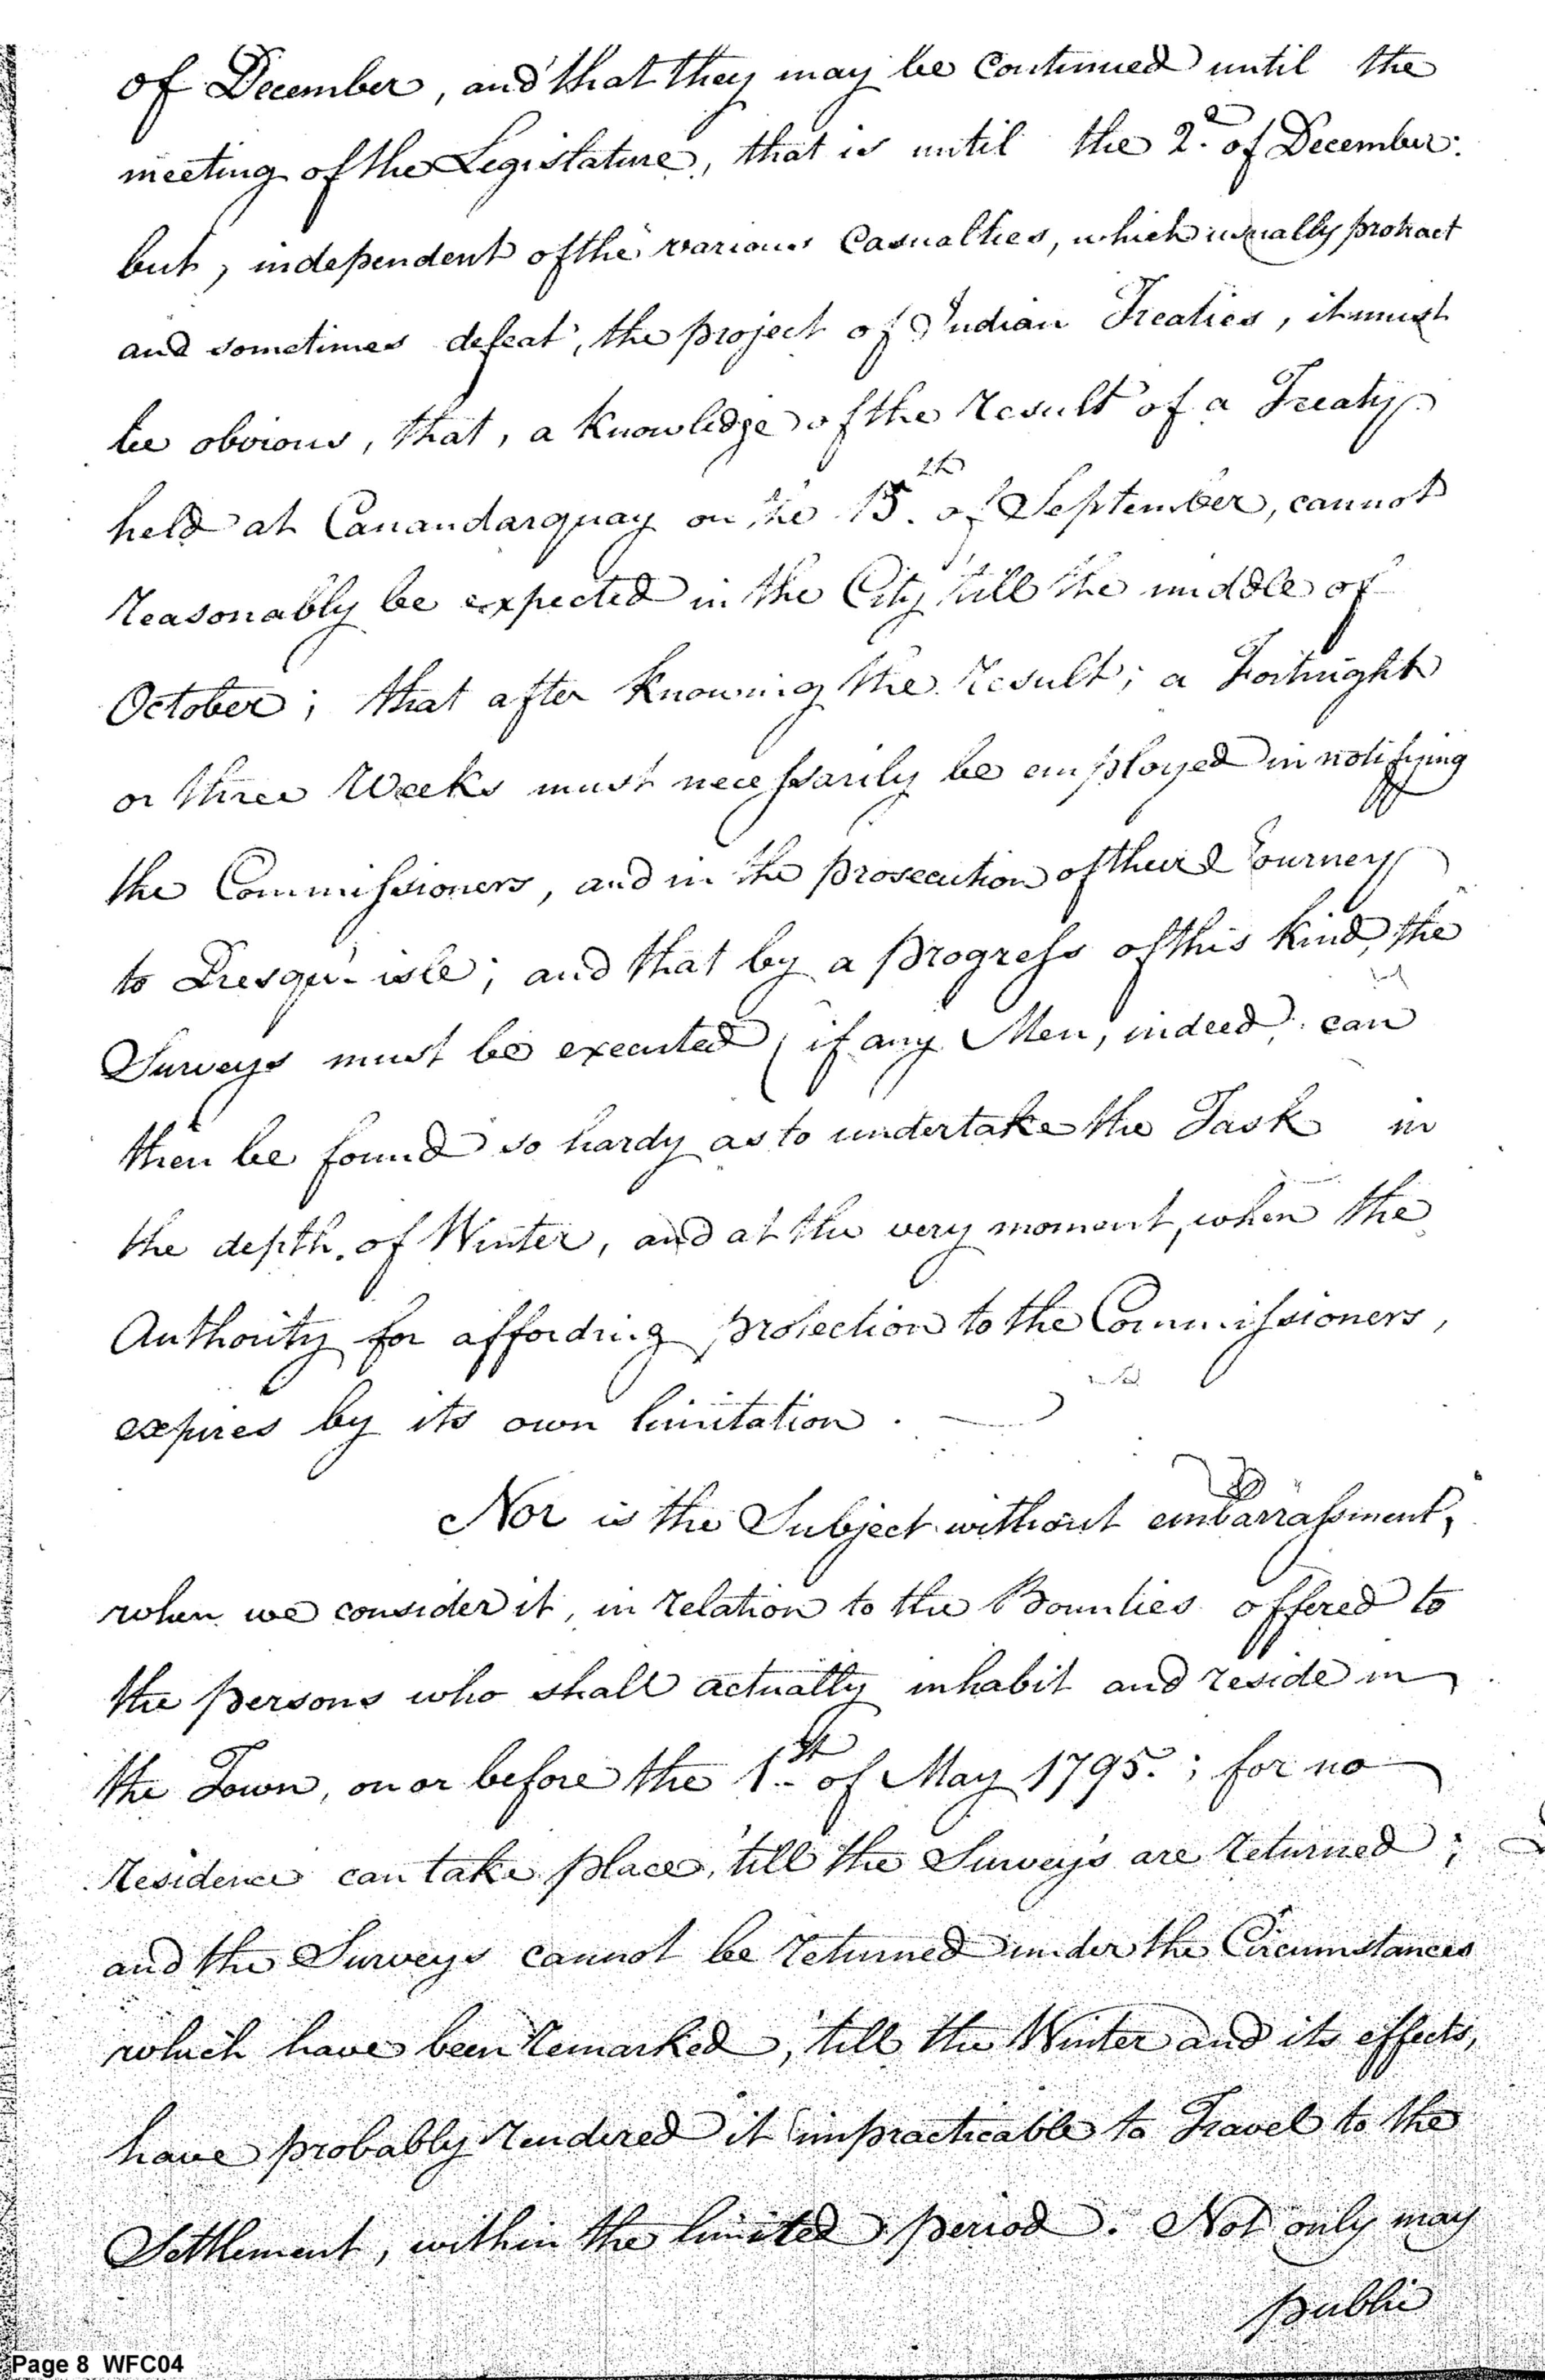 of December, and that they may be Continued until the
meeting of the Legislature, that is until the 2d. of December:
but, independent of the various Casualties, which usually protract
and sometimes defeat, the project of Indian Treaties, it must
be obvious, that, a knowledge of the result of a Treaty
held at Canandarquay on the 15th. of September, cannot
reasonably be expected in the City 'till the middle of
October; that after knowing the result; a Fortnight
or three Weeks must necessarily be employed in notifying
the Commissioners, and in the prosecution of their Journey
to Presqu'-isle; and that by a progress of this kind, the
Surveys must be executed (if any Men, indeed, can
then be found so hardy as to undertake the Task in
the depth of Winter, and at the very moment, when the
Authority for affording protection to the Commissioners,
expires by its own limitation.
Nor is the Subject without embarrassment,
when we consider it, in relation to the Bounties offered to
the persons who shall actually inhabit and reside in
the Town, on or before the 1st. of May 1795.; for no
residence can take place, 'till the Surveys are returned;
and the Surveys cannot be returned under the Circumstances
which have been remarked, 'till the Winter and its effects,
have probably rendered it impracticable to Travel to the
Settlement, within the limited period. Not only may
public
Page 8 WFC04